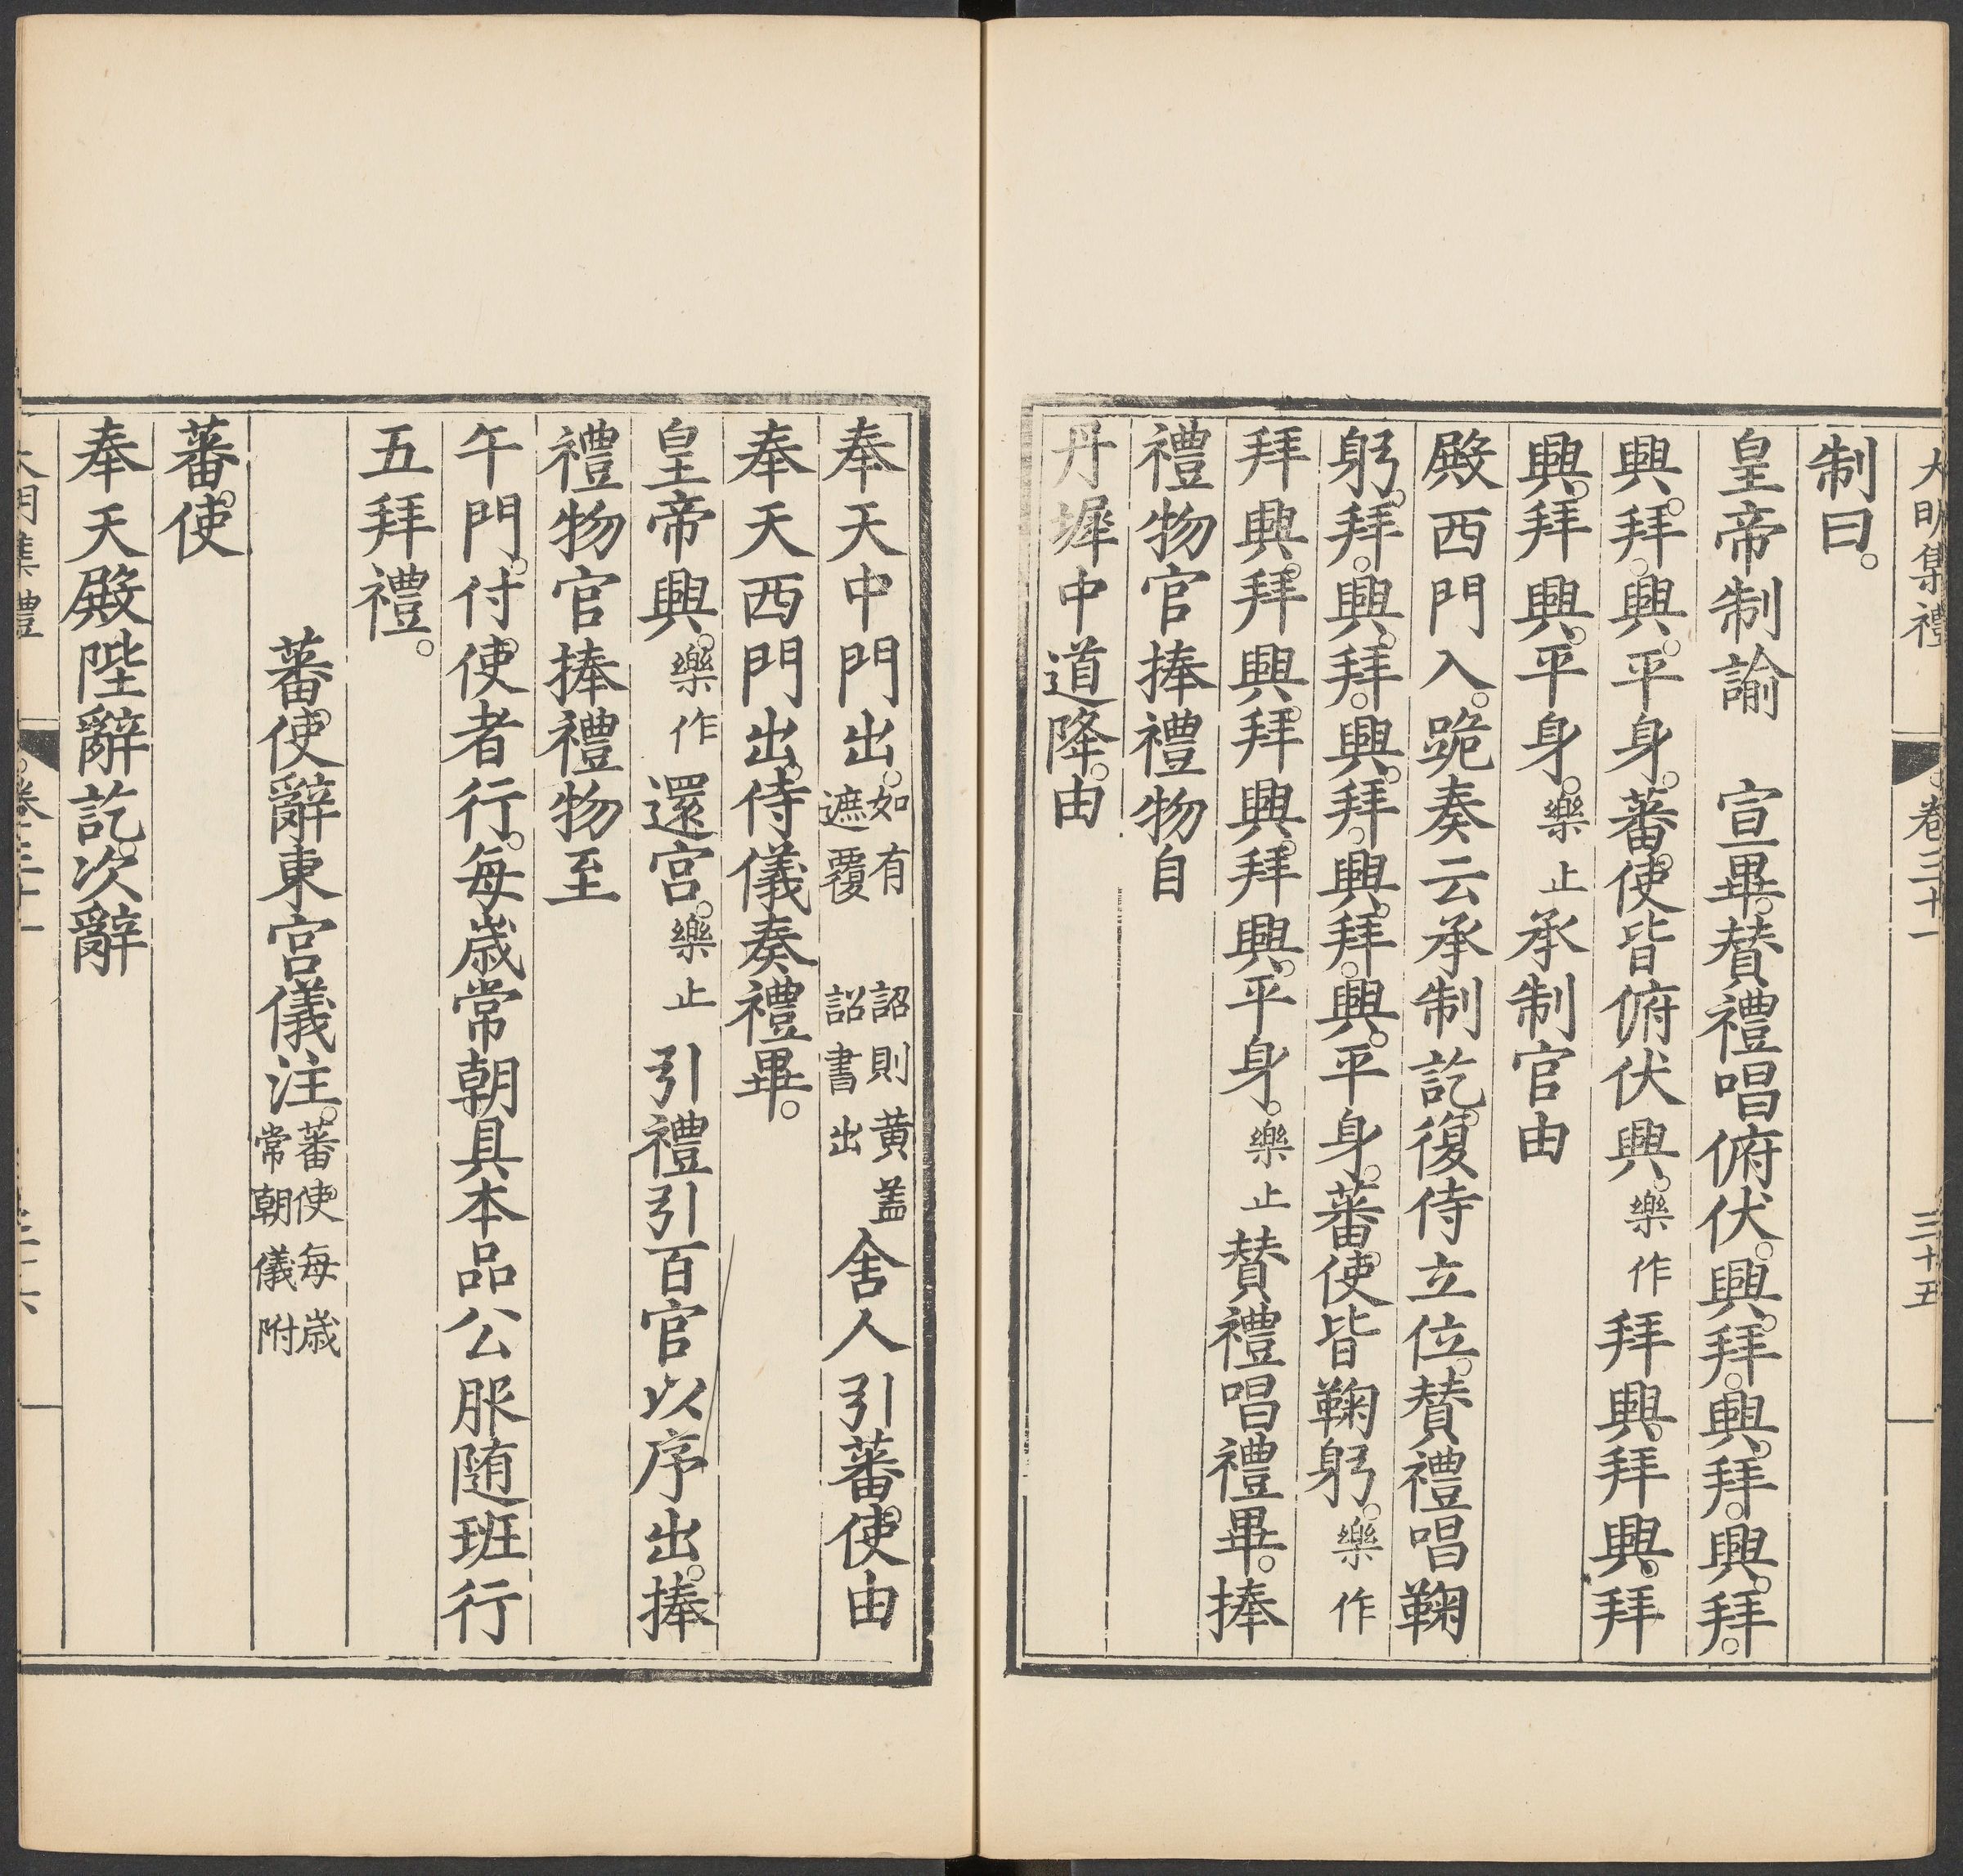 大明集禮 卷三十一 三十五
制曰。
皇帝制諭 宣畢。贊禮唱俯伏。興。拜。興。拜。興。拜。
興。拜。興。平身。蕃使皆俯伏興。樂作拜興。拜興。拜
興。拜興。平身。樂止承制官由
殿西門入。跪奏云承制訖。復侍立位。贊禮唱鞠
躬。拜。興。拜。興。拜。興。拜。興。平身。蕃使皆鞠躬。樂作
拜興。拜興。拜興。拜興。平身。樂止贊禮唱禮畢。捧
禮物官捧禮物自
丹墀中道降。由
奉天中門出。如有遮覆 詔則黄盖詔書出舍人引蕃使由
奉天西門出。侍儀奏禮畢。
皇帝興。樂作還宮。樂止 引禮引百官以序出。捧
禮物官捧禮物至
午門。付使者行。每歲常朝具本品公服随班行
五拜禮。
蕃使辭東宮儀注。蕃使每歲常朝儀附
蕃使
奉天殿陛辭訖。次辭
大明集禮 卷三十一 三十六